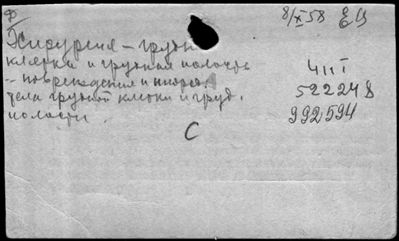 Ф
8/X 58 ЕЦ
Хирургия – грудн
клетка и грудная полость
– повреждения и инород.
тела грудной клетки и груд.
полости.
С
4111
522248
992594